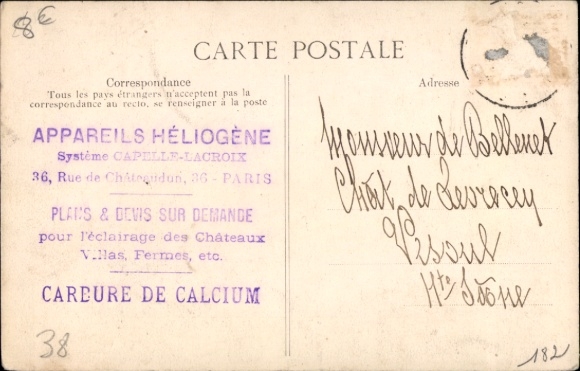 8€
CARTE POSTALE
Correspondance
Tous les pays étrangers n'acceptent pas la
correspondance au recto, se renseigner à la poste
Adresse
APPAREILS HÉLIOGÈNE
Système CAPELLE-LACROIX
36, Rue de Châteaudun, 36 - PARIS
PLANS & DEVIS SUR DEMANDE
pour l'éclairage des Châteaux
Villas, Fermes, etc.
CARBURE DE CALCIUM
Monsieur de Bellenet
Chât. de Levrecey
Vesoul
Hte Saône
38
182